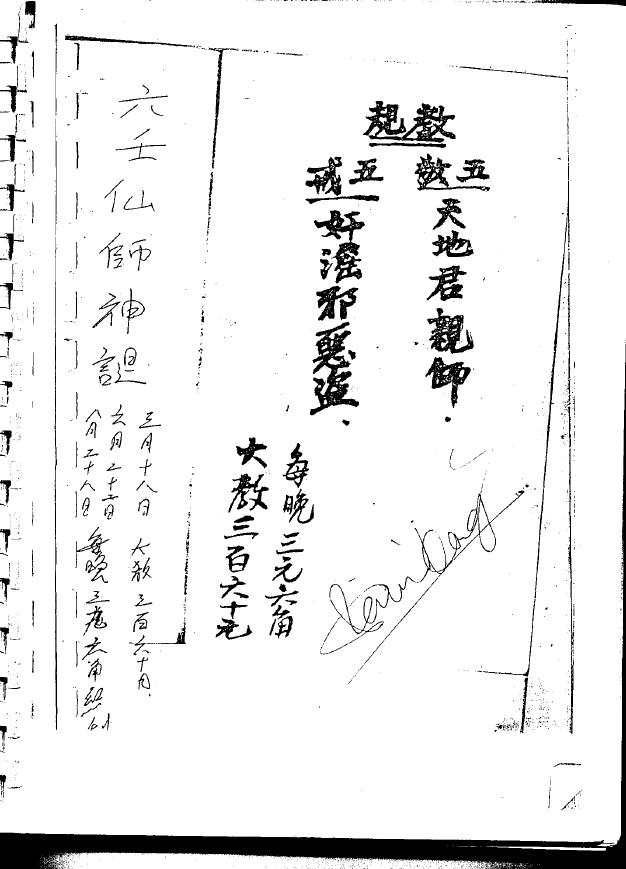 教規
五教
天地君親師.
五戒
奸滛邪惡盜.
每晚三元六角
大教三百六十元
六壬仙師神誕
三月十八日 大教三百六十円
六月二十二日
八月二十八日 每晚三元六角